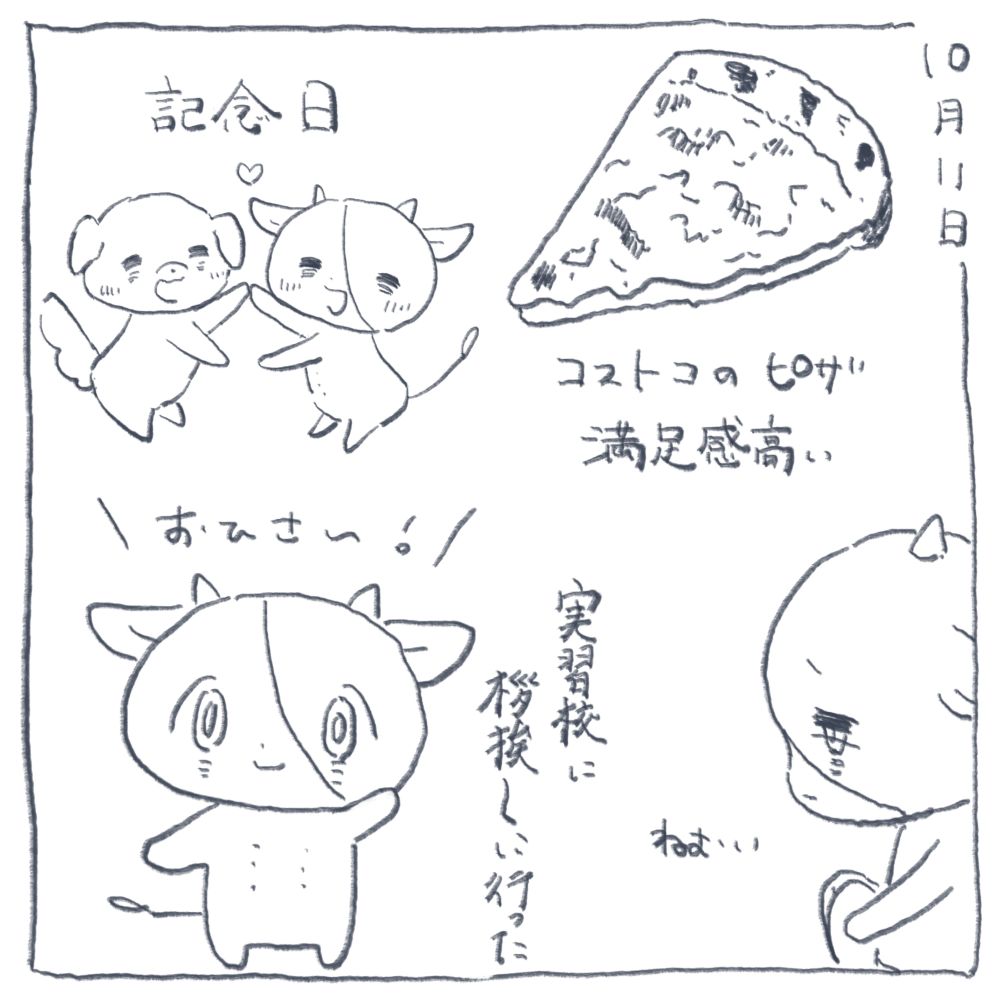 10月11日
コストコのピザ
満足感高い
記念日
ねむい
実習校に
挨拶しに行った
おひさい!